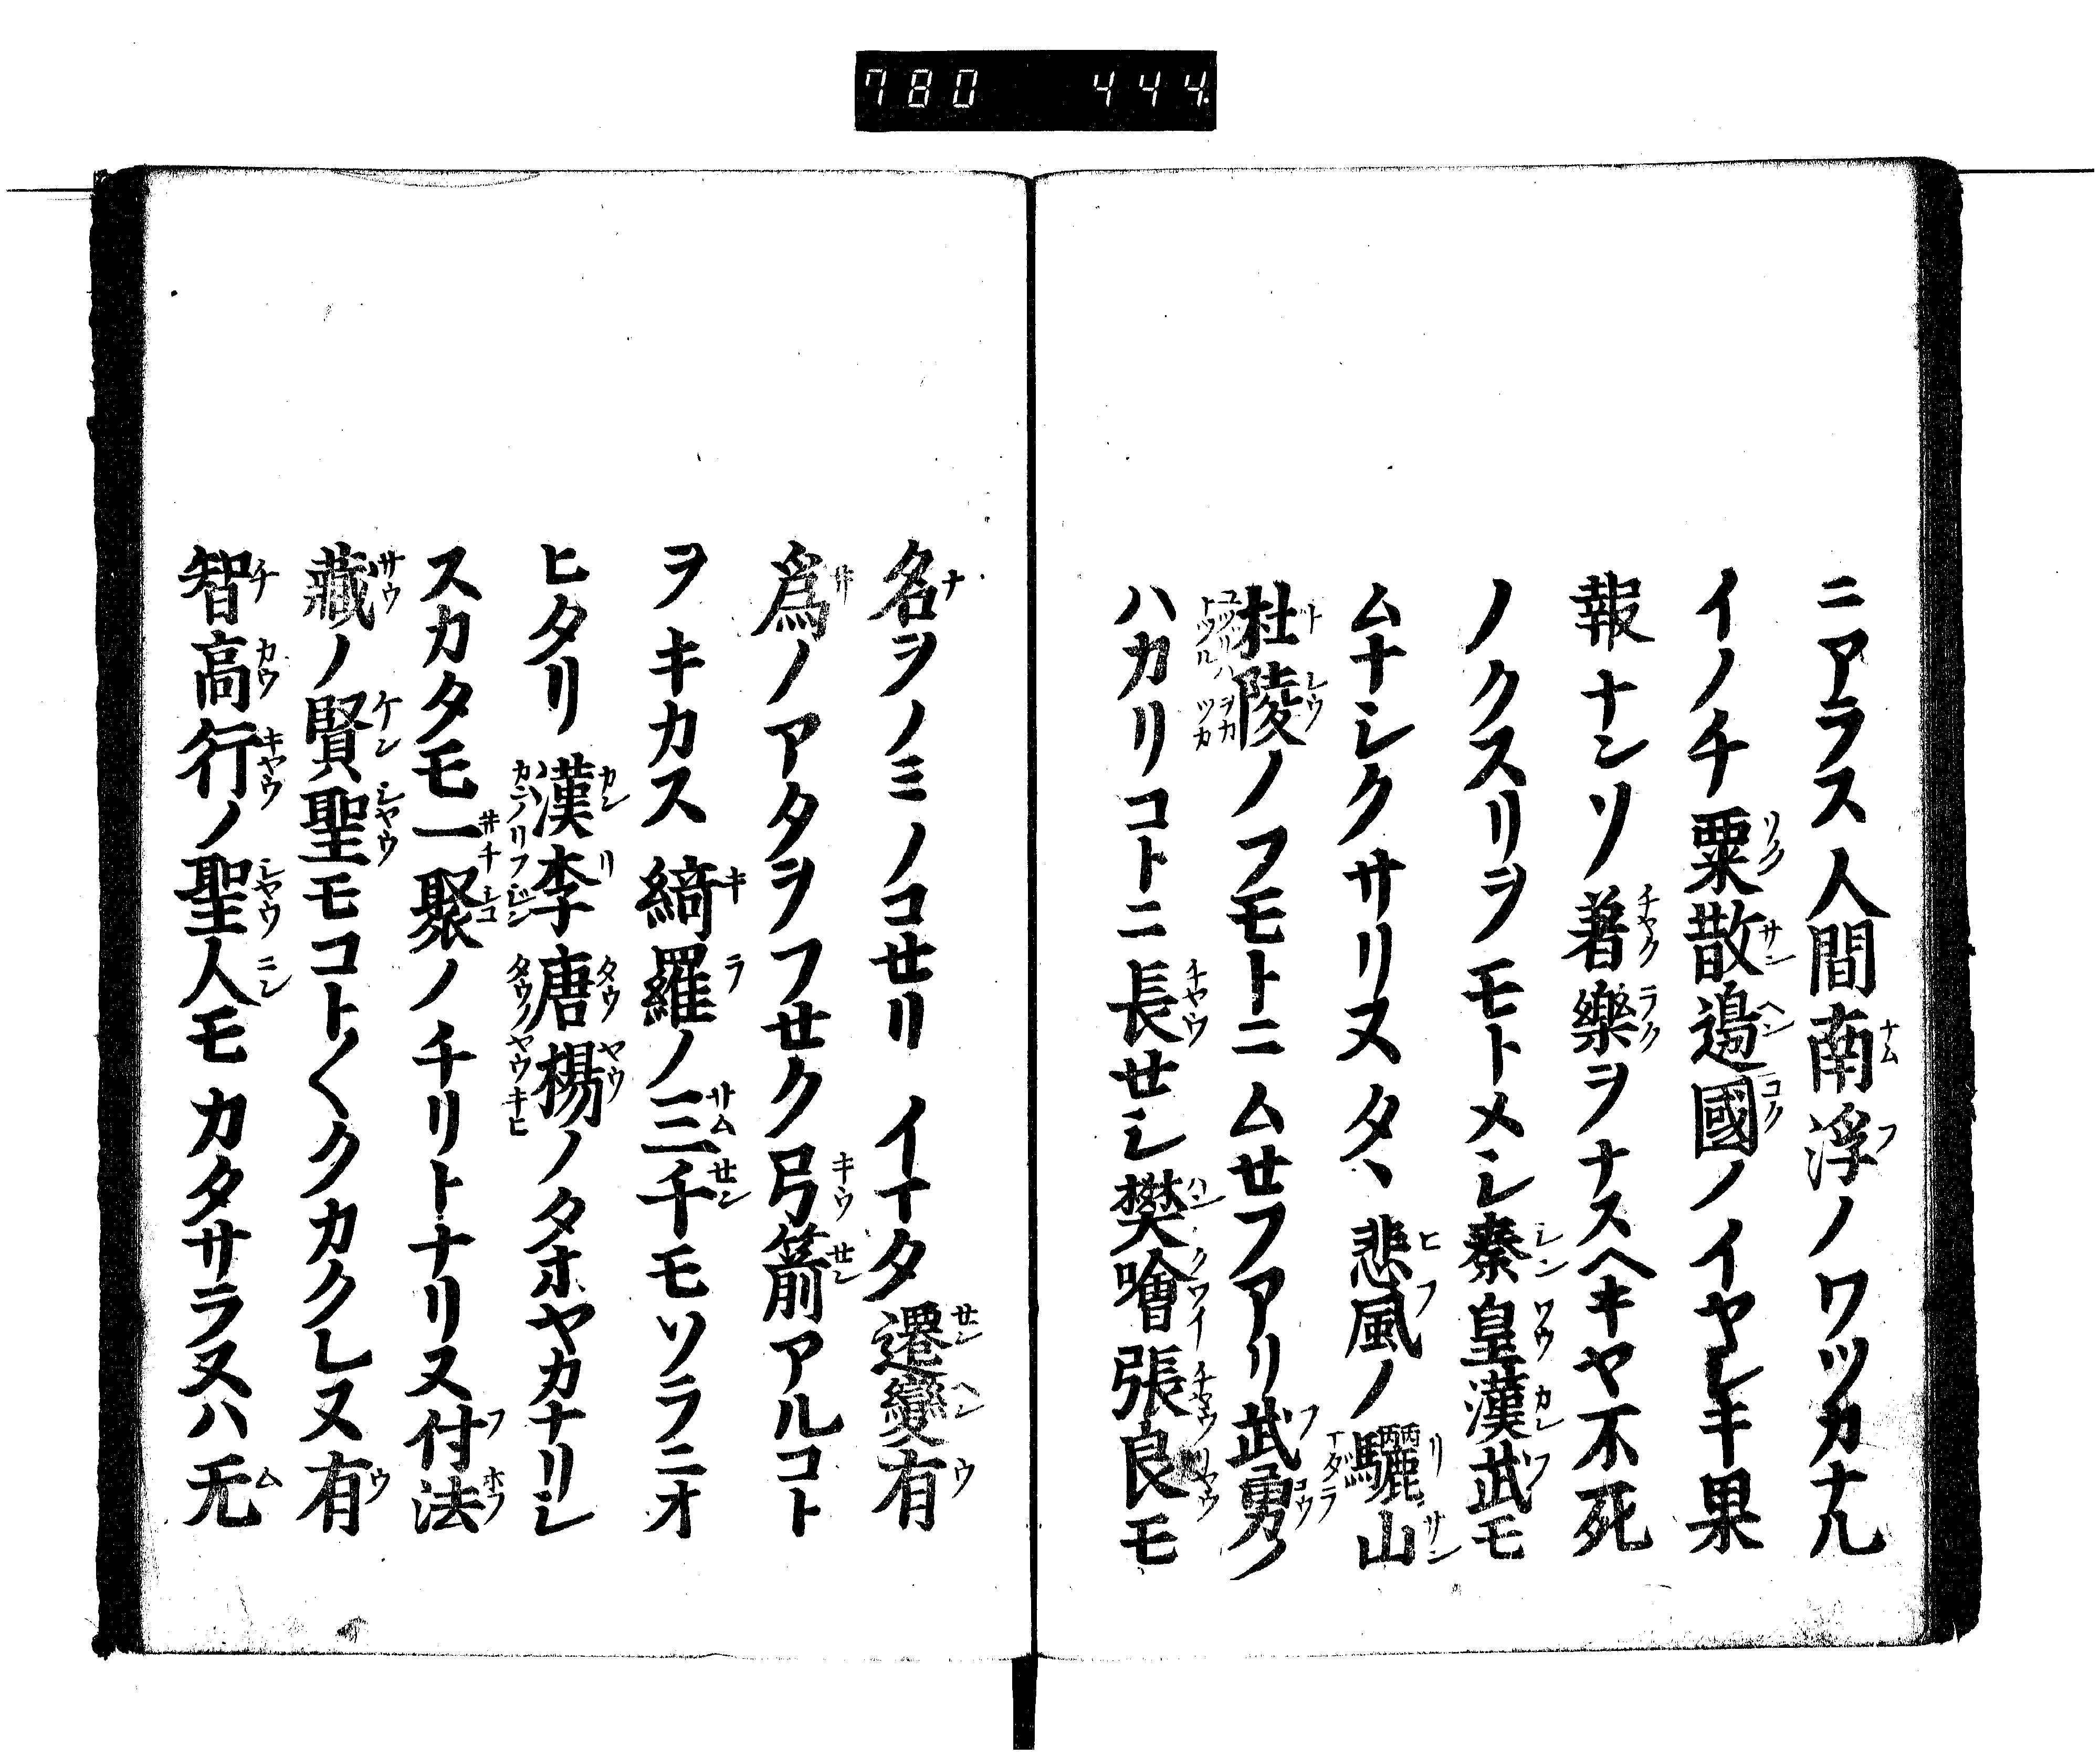 780 444
ニアラス人間南浮ノワツカナル
イノチ粟散邊國ノイヤシキ果
報ナンソ著樂ヲナスヘキヤ不死
ノクスリヲモトメシ秦皇漢武モ
ムナシクサリヌタヽ悲風ノ驪山
杜陵ノフモトニムセフアリ武勇
ハカリコトニ長セシ樊噲張良モ
名ヲノミノコセリ イイタ遷變有
爲ノアタヲフセク弓箭アルコト
ヲキカス綺羅ノ三千モソラニオ
ヒタリ漢李唐楊ノタホヤカナリシ
スカタモ一聚ノチリトナリヌ付法
藏ノ賢聖モコト〱クカクレヌ有
智高行ノ聖人モカタサラヌハ无